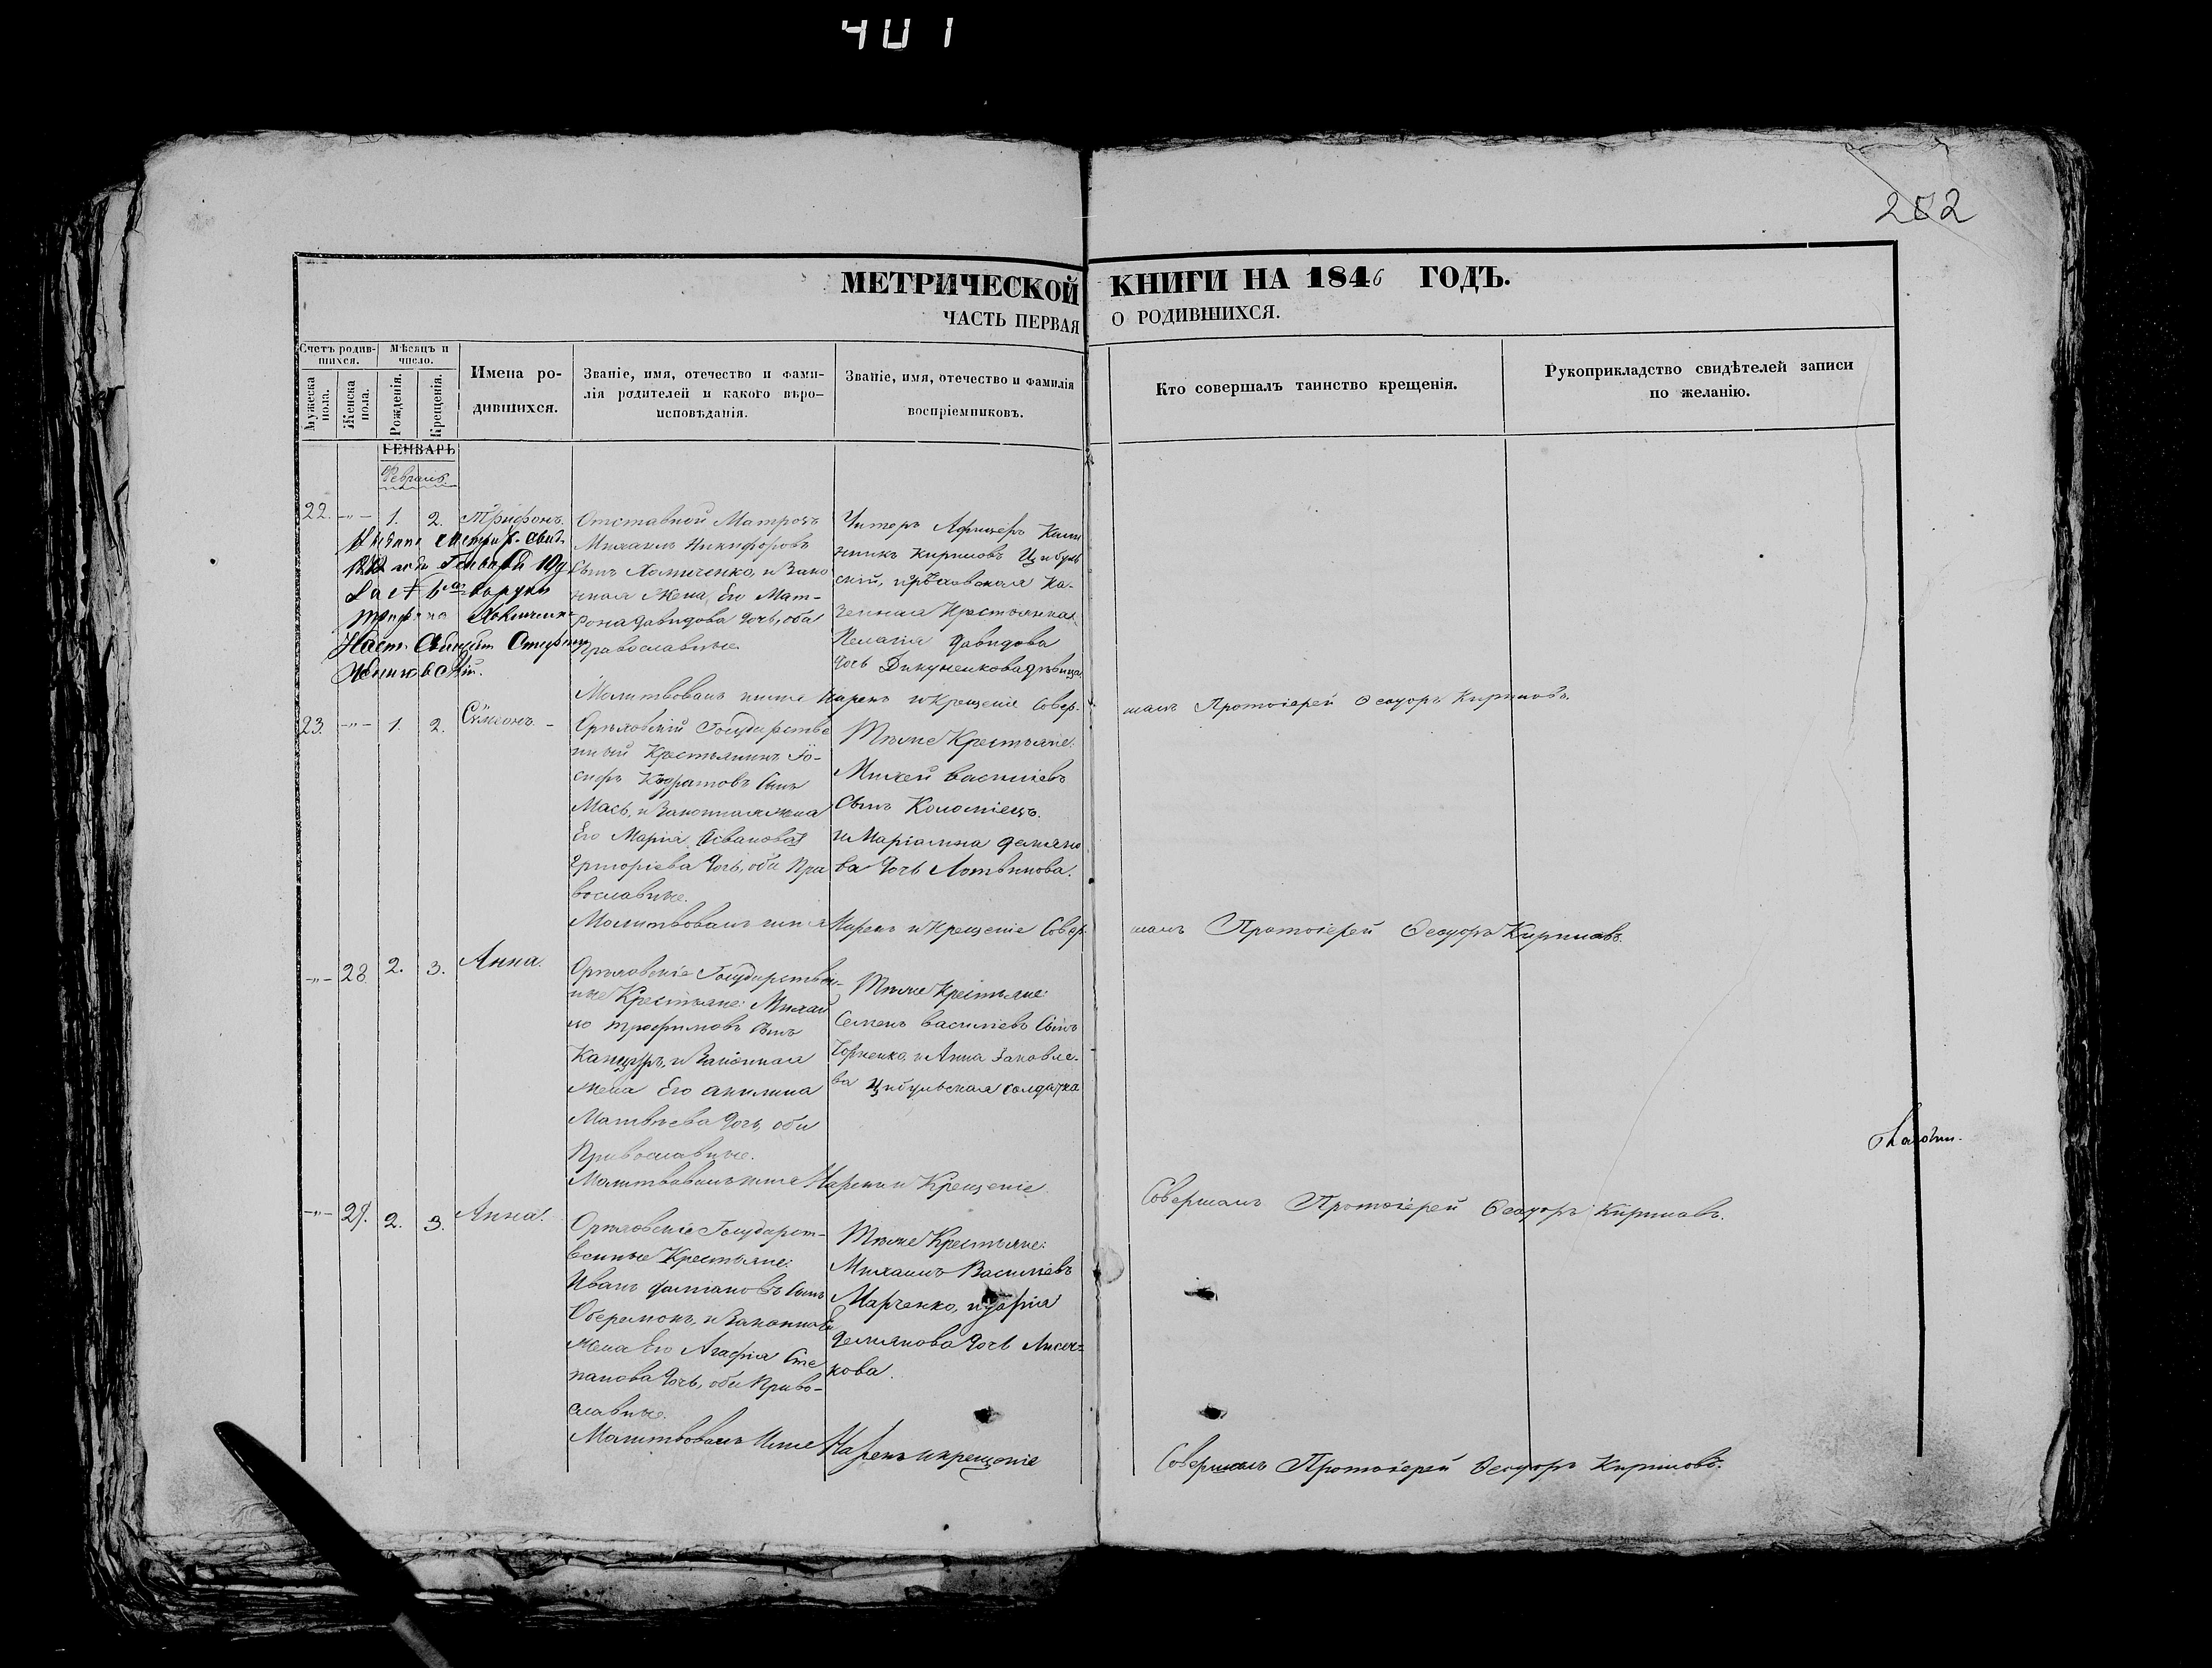 401
202
МЕТРИЧЕСКОЙ КНИГИ НА 1846 ГОДЪ.
ЧАСТЬ ПЕРВАЯ О РОДИВШИХСЯ.
Счетъ родив-
шихся.
Мѣсяцъ и
число.
Мужеска
пола.
Женска
пола.
Рожденія.
Крещенія.
Имена ро-
дившихся.
Званіе, имя, отечество и фами-
лія родителей и какого вѣро-
исповѣданія.
Званіе, имя, отечество и фамилія
воспріемниковъ.
Кто совершалъ таинство крещенія.
Рукоприкладство свидѣтелей записи
по желанію.
ГЕНВАРЬ
Февраль
22. -"- 1. 2. Трифонъ.
Отставной Матрозъ
Михаилъ Никифоровъ
Сынъ Хомиченко, и Зако
нная Жена, Его Мат-
рона Давидова дочь, оба
Православные.
Унтеръ Афицеръ
Кириловъ Цибуль
скій, и Орѣховская Ка-
зенная Крестьянка
Пелагія Давидова
дочь девица
Молитвовалъ имя Нарекъ и Крещеніе Совер-
шалъ Протоіерей Феодоръ Кириловъ.
23. -"- 1. 2. Симеонъ. -
Орѣховскій Государстве
нный Крестьянинъ Іо-
сифъ Кодратовъ Сынъ
Мась, и Законная жена
Его Марія
Григоріева дочь, оба Пра
вославные.
Тѣже Крестьяне:
Михей Василіевъ
Сынъ Коломіецъ.
и Маріамна Демяно
ва дочь Литвинова.
Молитвовалъ имя Нарекъ и Крещеніе Совер-
шалъ Протоіерей Феодоръ Кириловъ.
-"- 28. 2. 3. Анна.
Орѣховскіе Государствен-
ные Крестьяне: Михай
ло Трофимовъ Сынъ
Канцуръ, и Законная
жена Его Акилина
Матвѣева дочь, оба
Православные.
Тѣже Крестьяне:
Семенъ Василіевъ Сынъ
Горпенко, и Анна Яковле-
ва Цибульская солдатка
Молитвовалъ имя Нарекъ и Крещеніе
Совершалъ Протоіерей Феодоръ Кириловъ.
-"- 29. 2. 3. Анна.
Орѣховскіе Государст-
венные Крестьяне:
Иванъ Даміановъ Сынъ
Оберемокъ, и Законная
жена Его Агафія Сте
панова дочь, оба Право-
славные.
Тѣже Крестьяне:
Михаилъ Василіевъ
Марченко, и Дарія
Демянова дочь Лисич-
кова.
Молитвовалъ Имя Нарекъ и крещеніе
Совершалъ Протоіерей Феодоръ Кириловъ.